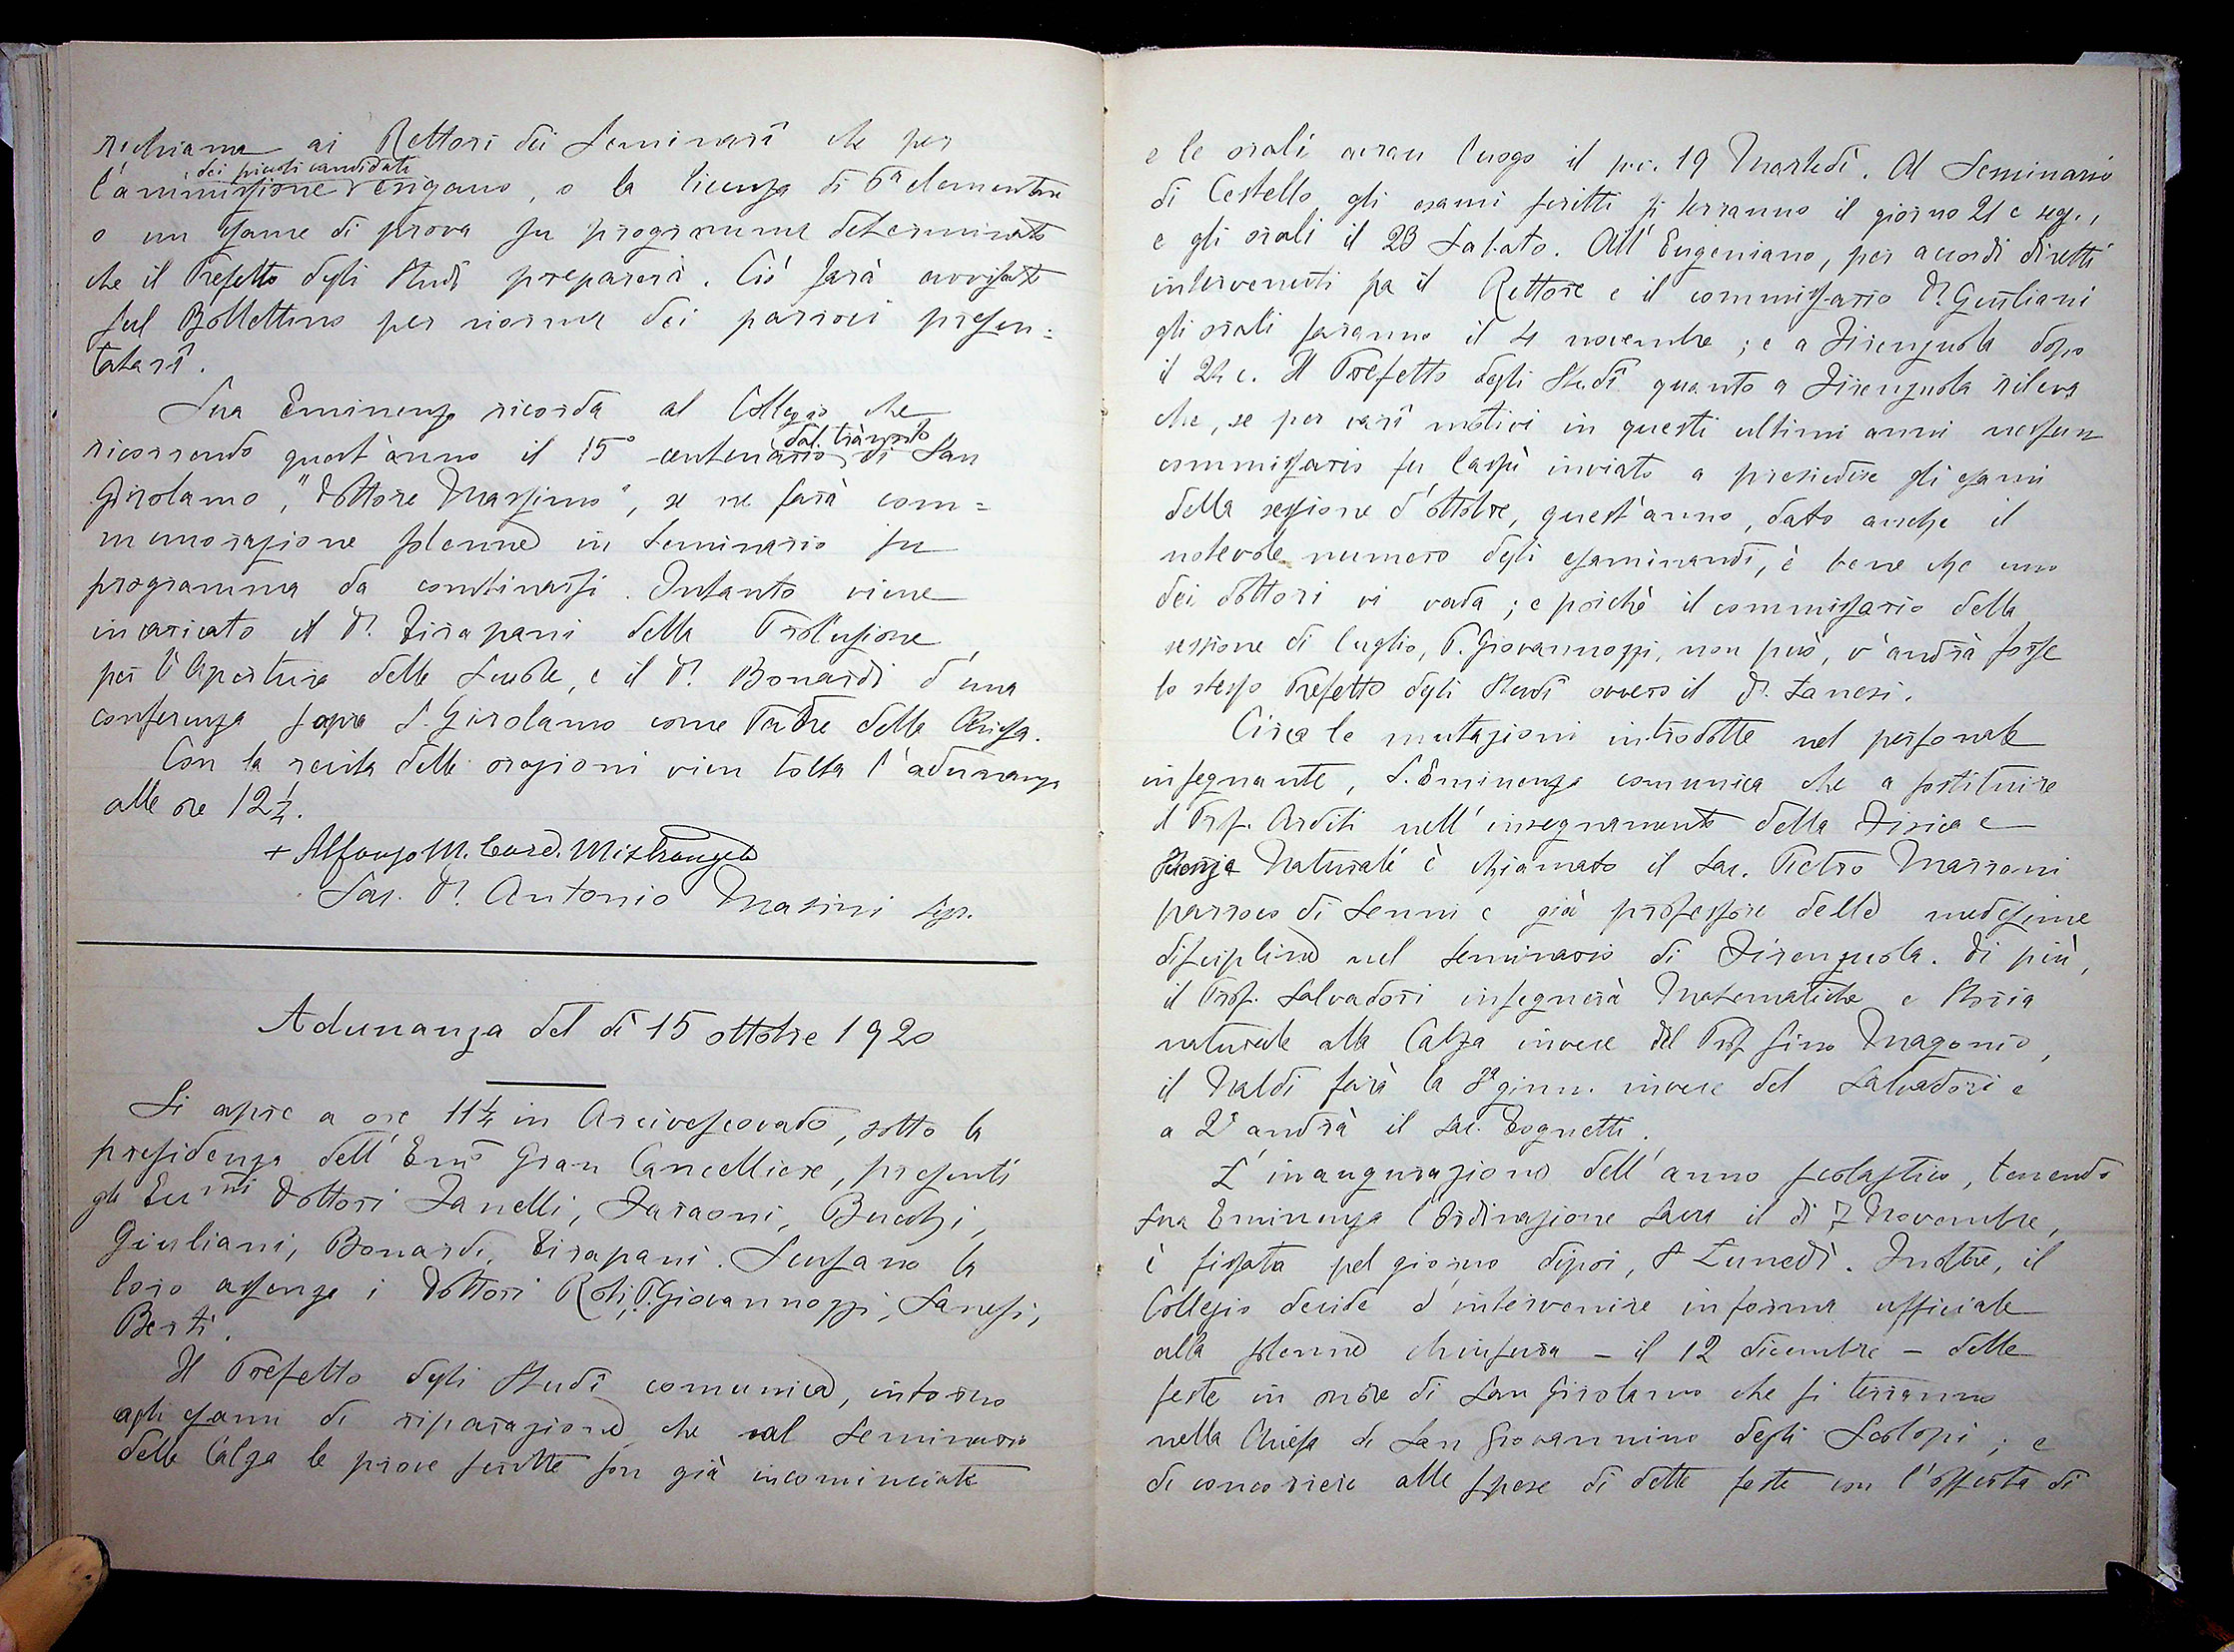 richiama ai Rettori dei Seminarî che per
l'ammissione dei piccoli candidati esigano, o la licenza di 6ª elementare
o un esame di prova su programma determinato
che il Prefetto degli Studî preparerà. Ciò sarà avvisato
sul Bollettino per norma dei parroci presen=
tatarî.
Sua Eminenza ricorda al Collegio che
ricorrendo quest'anno il 15° centenario dal transito di San
Girolamo, "Dottore Massimo", se ne farà com=
memorazione solenne in Seminario su
programma da combinarsi. Intanto viene
incaricato il D.r Tirapani della Prolusione
per l'Apertura delle Scuole, e il D.r Bonardi d'una
conferenza sopra S. Girolamo come Padre della Chiesa.
Con la recita delle orazioni vien tolta l'adunanza
alle ore 12½.
+ Alfonso M. Card. Mistrangelo
Sac. D.r Antonio Masini Segr.
Adunanza del dì 15 ottobre 1920
Si apre a ore 11½ in Arcivescovado, sotto la
presidenza dell'Emo Gran Cancelliere, presenti
gli Ecc.mi Dottori Zanelli, Faraoni, Bucchi,
Giuliani, Bonardi, Tirapani. Scusano la
loro assenza i Dottori Roti, P. Giovannozzi, Sanesi,
Berti.
Il Prefetto degli Studî comunica, intorno
agli esami di riparazione che al Seminario
della Calza le prove scritte son già incominciate
e le orali avran luogo il p.v. 19 Martedì. Al Seminario
di Cestello gli esami scritti si terranno il giorno 21 e seg.,
e gli orali il 23 Sabato. All'Eugeniano, per accordi diretti
intervenuti fra il Rettore e il commissario D.r Giuliani
gli orali saranno il 4 novembre; e a Firenzuola dopo
il 24 c. Il Prefetto degli Studî quanto a Firenzuola rileva
che, se per varî motivi in questi ultimi anni nessun
commissario fu lassù inviato a presiedere gli esami
della sessione d'ottobre, quest'anno, dato anche il
notevole numero degli esaminandi, è bene che uno
dei dottori vi vada; e poichè il commissario della
sessione di luglio, P. Giovannozzi, non può, v'andrà forse
lo stesso Prefetto degli Studî ovvero il D.r Sanesi.
Circa le mutazioni introdotte nel personale
insegnante, S. Eminenza comunica che a sostituire
il Prof. Arditi nell'insegnamento della Fisica e
Scienze Naturali è chiamato il Sac. Pietro Marroni
parroco di Senni e già professore delle medesime
discipline nel Seminario di Firenzuola. Di più,
il Prof. Salvadori insegnerà Matematiche e Storia
naturale alla Calza invece del Prof. Gino Magonio,
il Naldi farà la 3ª ginn. invece del Salvadori e
a 2ª andrà il Sac. Tognetti.
L'inaugurazione dell'anno scolastico, tenendo
Sua Eminenza l'Ordinazione Sacra il dì 7 Novembre,
è fissata pel giorno dipoi, 8 Lunedì. Inoltre, il
Collegio decide d'intervenire in forma ufficiale
alla solenne chiusura - il 12 dicembre - delle
feste in onore di San Girolamo che si terranno
nella Chiesa di San Giovannino degli Scolopi; e
di concorrere alle spese di dette feste con l'offerta di